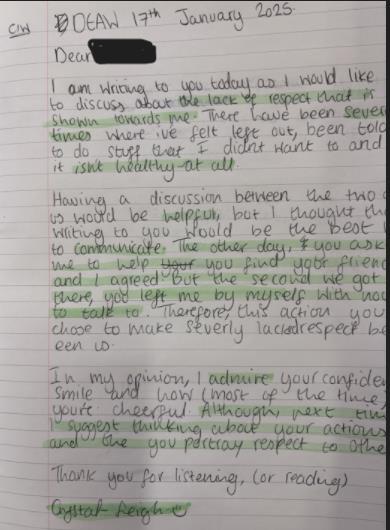 C/W DEAW 17th January 2025.
Dear
I am writing to you today as I would like
to discuss about the lack of respect that is
shown towards me. There have been seve
times where i've felt left out, been told
to do stuff that I didnt want to and
it isnt healthy at all.
Having a discussion between the two o
us would be helpful, but I thought th
writing to you would be the best
to communicate. The other day, you ask
me to help you find your frien
and I agreed but the second we got
there, you left me by myself with no
to talk to. Therefore, this action you
chose to make severly lacked respect be
een us.
In my opinion, I admire your confide
smile and how (most of the time
you're cheerful. Although, next tim
I suggest thinking about your actions
and the you portray respect to othe
Thank you for listening, (or reading)
Crystal Leigh